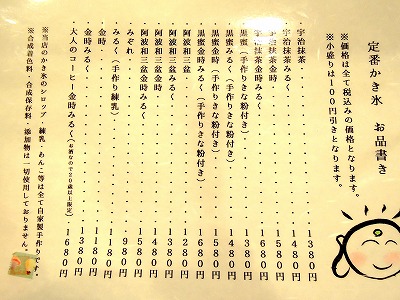 定番かき氷　お品書き
※価格は全て税込みの価格となります。
※小盛りは１００円引きとなります。
宇治抹茶・・・・・・・・・・・・・・・１３８０円
宇治抹茶みるく・・・・・・・・・・・・１４８０円
宇治抹茶金時・・・・・・・・・・・・・１５８０円
宇治抹茶金時みるく・・・・・・・・・・１６８０円
黒蜜（手作りきな粉付き）・・・・・・・１３８０円
黒蜜みるく（手作りきな粉付き）・・・・１４８０円
黒蜜金時（手作りきな粉付き）・・・・・１５８０円
黒蜜金時みるく（手作りきな粉付き）・・１６８０円
阿波和三盆・・・・・・・・・・・・・・１２８０円
阿波和三盆みるく・・・・・・・・・・・１３８０円
阿波和三盆金時・・・・・・・・・・・・１４８０円
阿波和三盆金時みるく・・・・・・・・・１５８０円
みぞれ・・・・・・・・・・・・・・・・９８０円
みるく（手作り練乳）・・・・・・・・・１１８０円
金時・・・・・・・・・・・・・・・・・１１８０円
金時みるく・・・・・・・・・・・・・・１３８０円
大人のコーヒー金時みるく（お酒なので２０歳以上限定）・・１６８０円
※当店のかき氷のシロップ、練乳、あんこ等は全て自家製手作りです。
※合成着色料・合成保存料、添加物は一切使用しておりません。